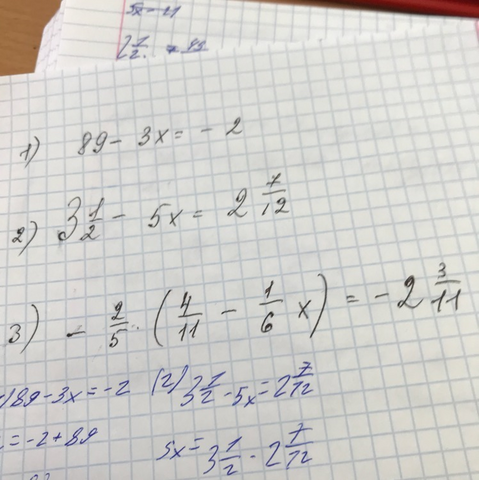 5x = 11
2 1/2
1) 89 - 3x = - 2
2) 3 1/2 - 5x = 2 7/12
3) - 2/5 · (4/11 - 1/6 x) = - 2 3/11
) 89 - 3x = -2 (2) 3 1/2 - 5x = 2 7/12
= -2 + 89 5x = 3 1/2 - 2 7/12